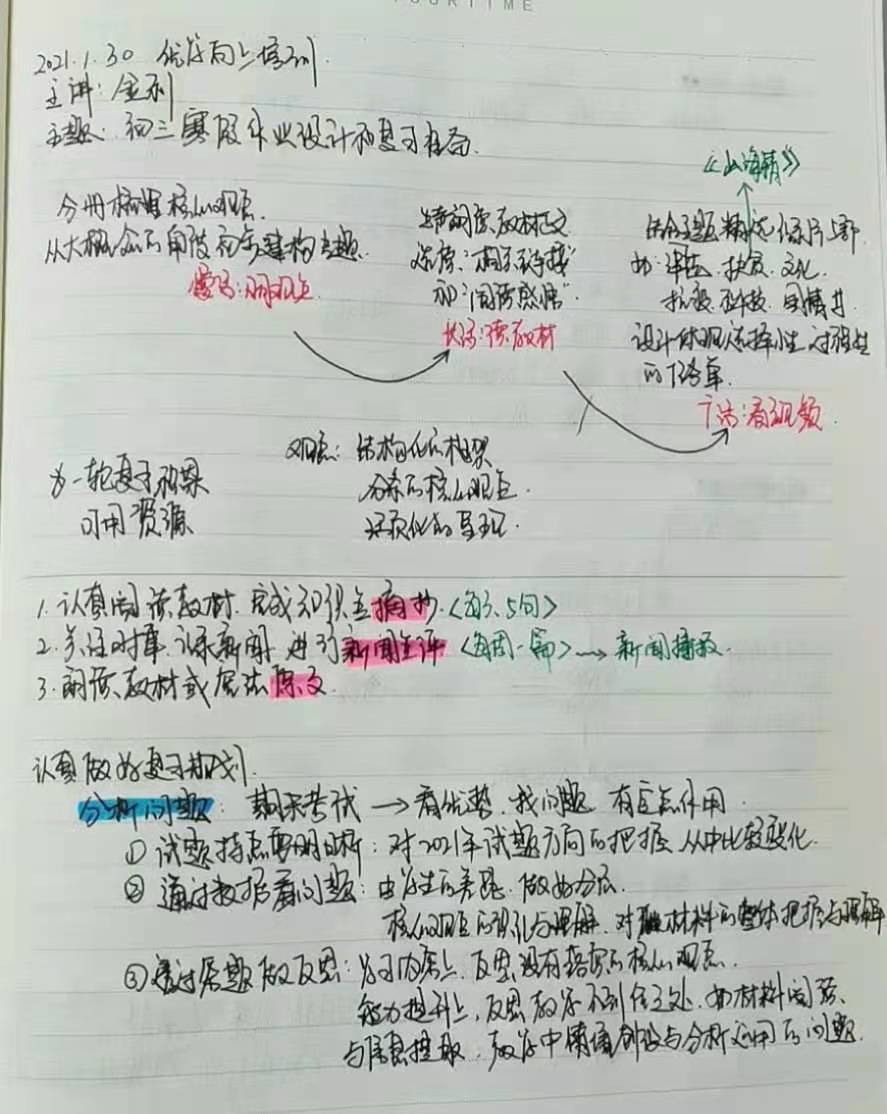 OURTIME
2021.1.30 优学向上培训.
主讲: 金利
主题: 初三寒假作业设计和复习准备.
《山海情》
分册梳理核心观点.
从大概念的角度 建构主题.
寒假: 明观点
朗读原教材正文
选读: "相关链接"
和"阅读感悟".
读教材
结合主题精选 影片
如: 扶贫、文化.
抗疫、科技
设计体现选择性 过程性
的任务单.
看视频.
为一轮复习积累
可用资源
观点: 结构化的框架
分条的核心观点.
的呈现.
1. 认真阅读教材. 完成知识点摘抄. <每天5句>
2. 关注时事 记录新闻 进行新闻点评 <每周一篇> → 新闻播报.
3. 朗读教材或宪法原文.
认真做好复习规划.
分析问题: 期末考试 → 看优势、找问题 有 作用.
① 试题特点要明晰: 对2021年试题方向的把握 从中比较变化.
② 通过数据看问题: 由学生的差距、做好分层.
核心观点的 与理解、对 材料的整体把握与理解
③ 通过 题做反思: 学习内容上、反思没有落实的核心观点.
能力提升上, 反思教学不到位之处. 如材料阅读、
与信息提取、教学中情境创设与分析运用的问题.